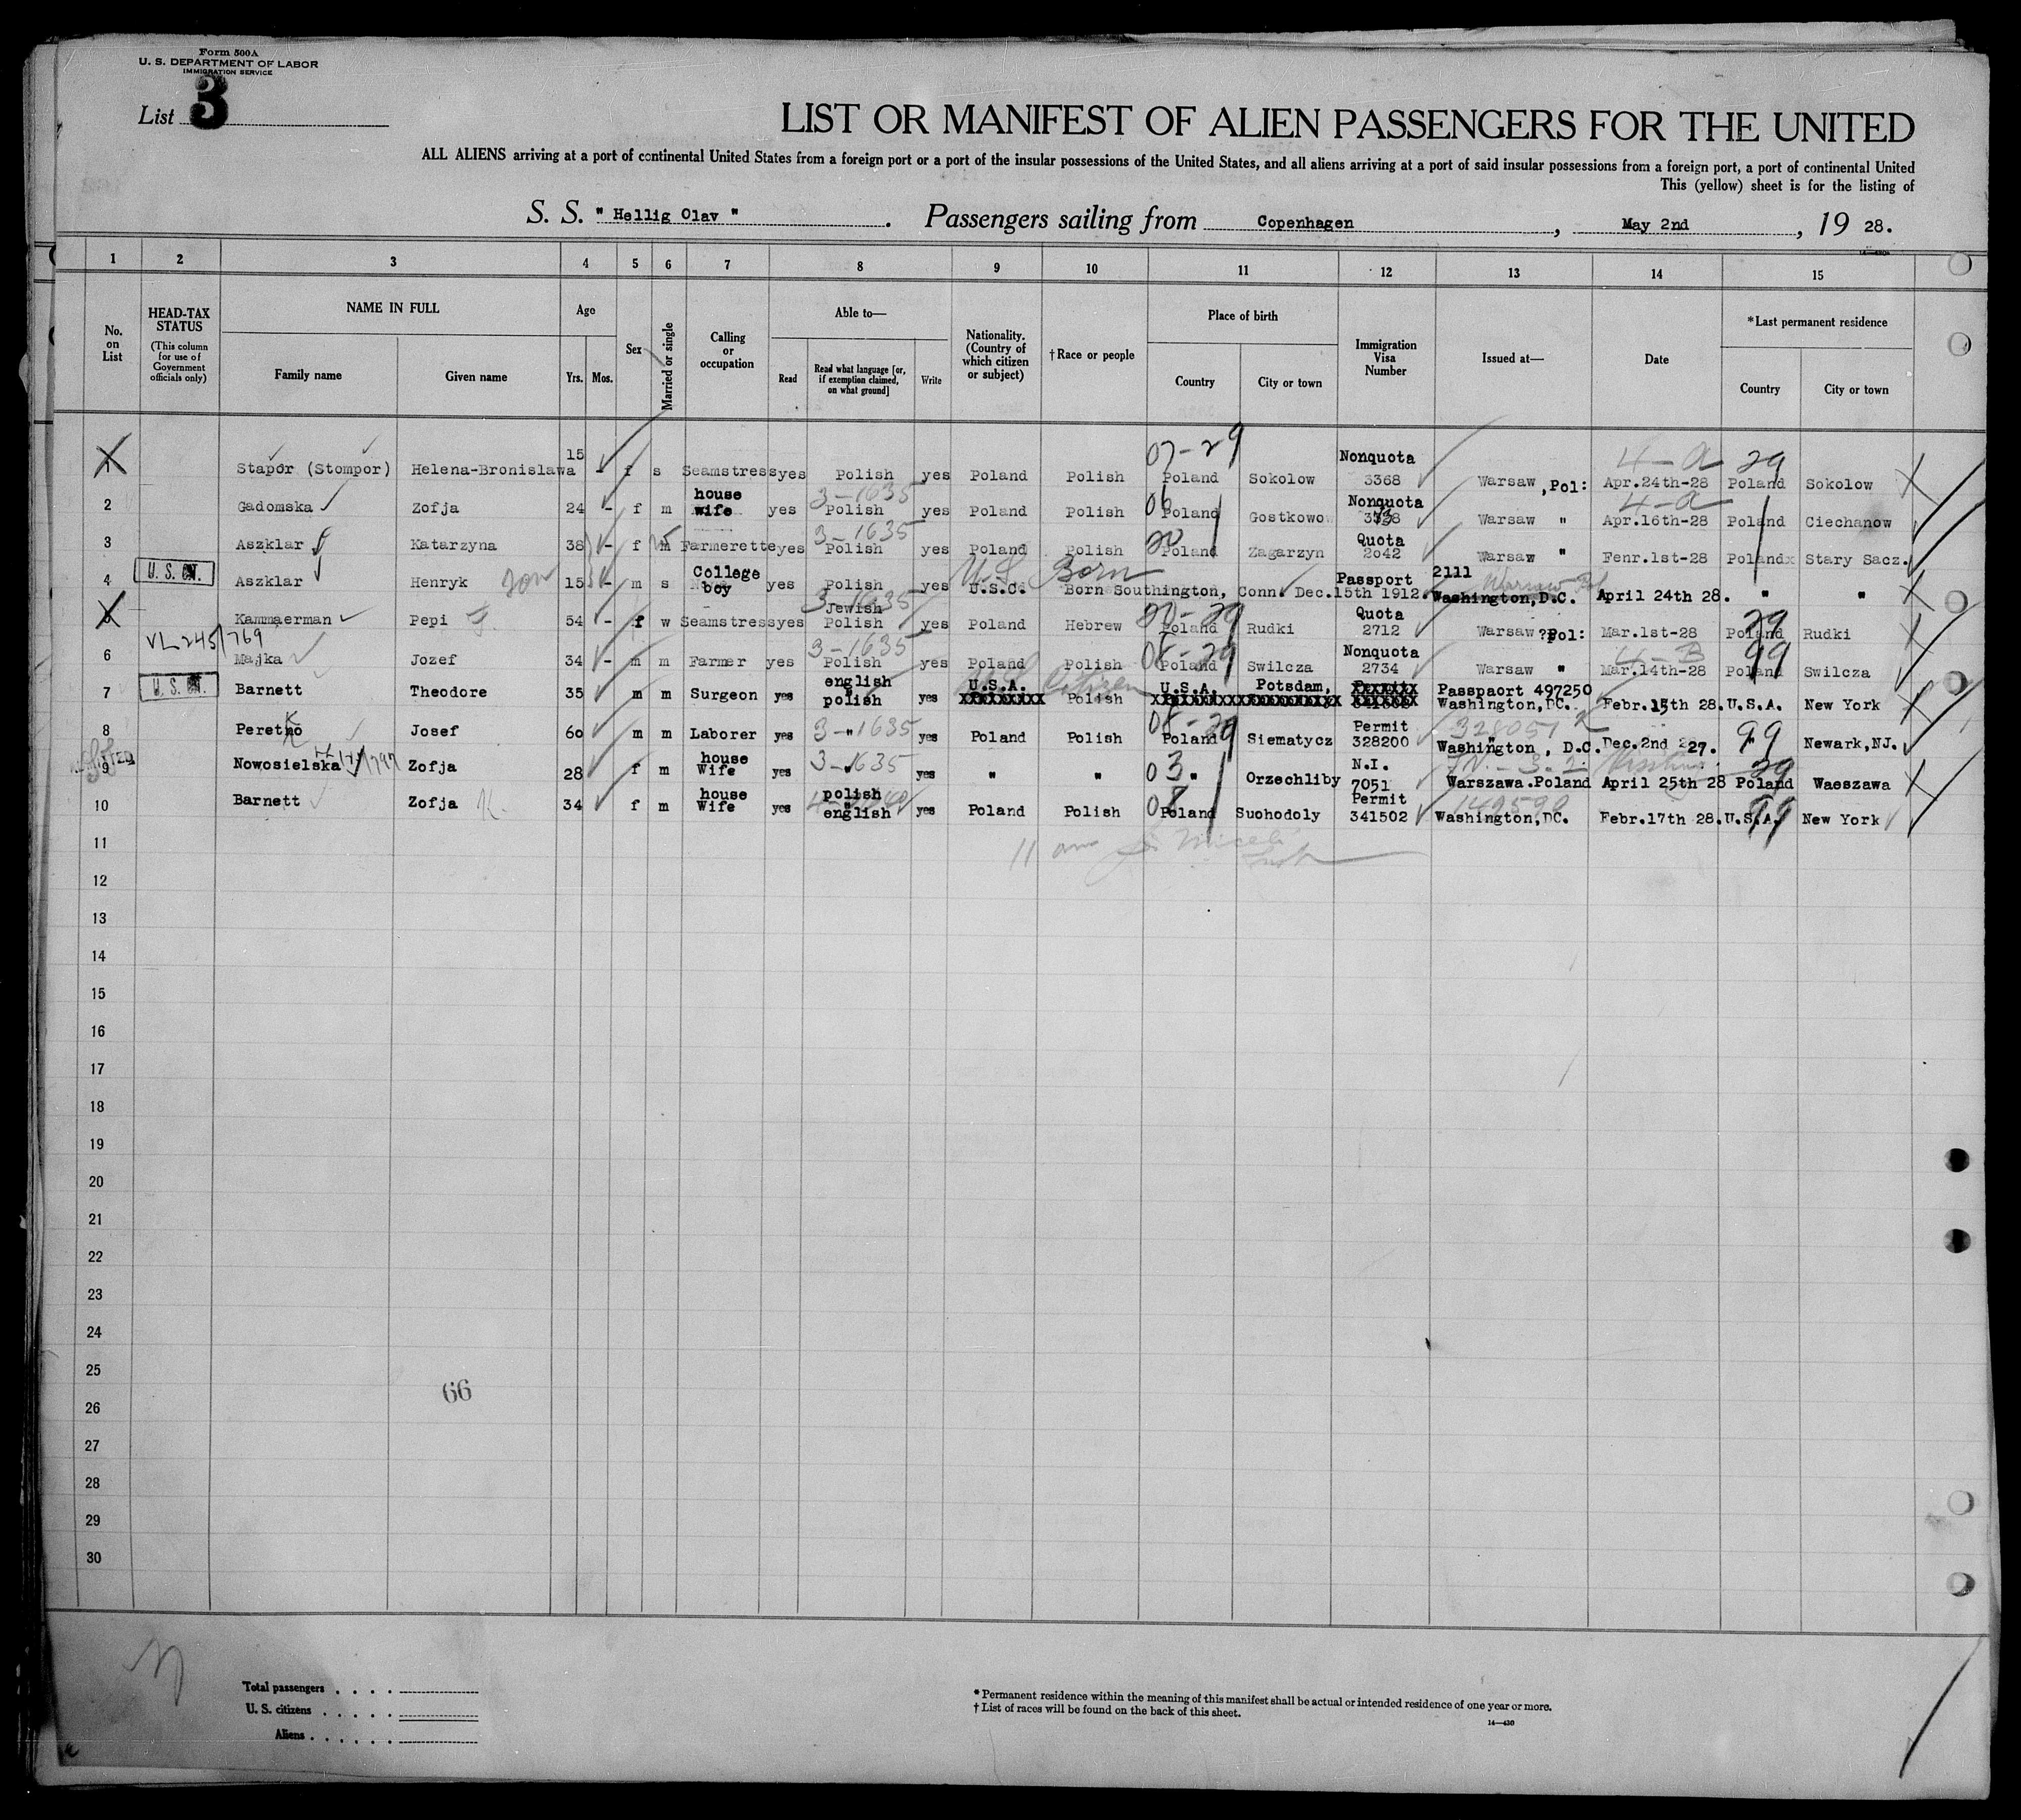 Form 500A
U. S. DEPARTMENT OF LABOR
IMMIGRATION SERVICE
List 3
LIST OR MANIFEST OF ALIEN PASSENGERS FOR THE UNITED
ALL ALIENS arriving at a port of continental United States from a foreign port or a port of the insular possessions of the United States, and all aliens arriving at a port of said insular possessions from a foreign port, a port of continental United
This (yellow) sheet is for the listing of
S. S. " Hellig Olav ". Passengers sailing from Copenhagen, May 2nd, 19 28.
1 2 3 4 5 6 7 8 9 10 11 12 13 14 15
No. on List
HEAD-TAX STATUS (This column for use of Government officials only)
NAME IN FULL Family name Given name
Age Yrs. Mos.
Sex
Married or single
Calling or occupation
Able to— Read Read what language [or, if exemption claimed, on what ground] Write
Nationality. (Country of which citizen or subject)
†Race or people
Place of birth Country City or town
Immigration Visa Number
Issued at—
Date
*Last permanent residence Country City or town
07-29 4-a 29
1 Stapor (Stompor) Helena-Bronislawa 15 - f s Seamstress yes Polish yes Poland Polish Poland Sokolow Nonquota 3368 Warsaw, Pol: Apr.24th-28 Poland Sokolow
3-1635 06 4-a
2 Gadomska Zofja 24 - f m house wife yes Polish yes Poland Polish Poland Gostkowo Nonquota Warsaw " Apr.16th-28 Poland Ciechanow
3-1635 20
3 Aszklar Katarzyna 38 - f m Farmerette yes Polish yes Poland Polish Poland Zagarzyn Quota 2042 Warsaw " Fenr.1st-28 Poland Stary Sacz.
U.S. Born
4 U. S. CIT. Aszklar Henryk 15 - m s College boy yes Polish yes U.S.C. Born Southington, Conn. Dec.15th 1912 Passport 2111 Washington,D.C. April 24th 28. " "
3-1635 20-29 29
5 Kammaerman Pepi 54 - f w Seamstress yes Jewish Polish yes Poland Hebrew Poland Rudki Quota 2712 Warsaw ?Pol: Mar.1st-28 Poland Rudki
VL 245/769 3-1635 08-29 4-B 99
6 Majka Jozef 34 - m m Farmer yes Polish yes Poland Polish Poland Swilcza Nonquota 2734 Warsaw " Mar.14th-28 Poland Swilcza
7 U. S. CIT. Barnett Theodore 35 m m Surgeon yes english polish yes U.S.A. Citizen Polish U.S.A. Potsdam, Passpaort 497250 Washington,DC. Febr.15th 28. U.S.A. New York
3-1635 08-29 328051 99
8 Peretko Josef 60 m m Laborer yes " yes Poland Polish Poland Siematycz Permit 328200 Washington, D.C. Dec.2nd 27. " Newark,NJ.
3-1635 03 29
9 Nowosielska Zofja 28 f m house Wife yes " yes " " " Orzechliby N.I. 7051 Warszawa.Poland April 25th 28 Poland Waeszawa
08 149590 99
10 Barnett Zofja 34 f m house Wife yes polish english yes Poland Polish Poland Suohodoly Permit 341502 Washington,DC. Febr.17th 28. U.S.A. New York
11
12
13
14
15
16
17
18
19
20
21
22
23
24
25
66
26
27
28
29
30
Total passengers . . . .
U. S. citizens . . . . .
Aliens . . . . . .
* Permanent residence within the meaning of this manifest shall be actual or intended residence of one year or more.
† List of races will be found on the back of this sheet.
14—430